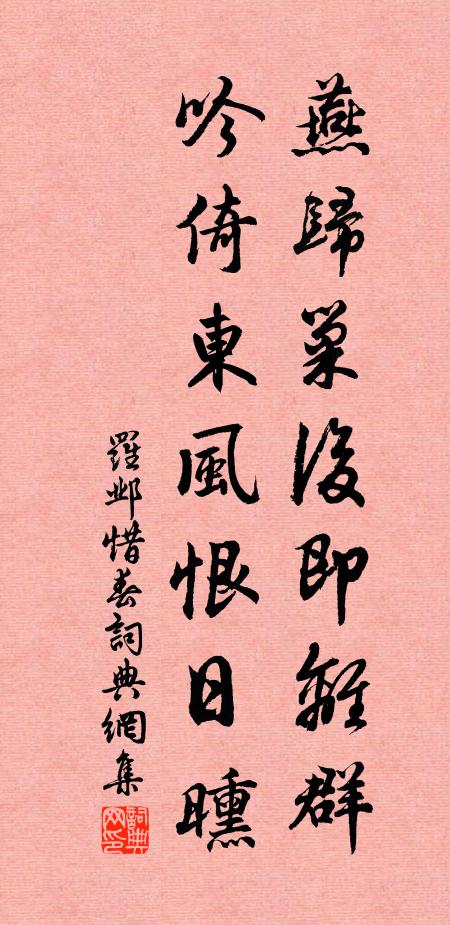 燕歸巢後即離群
吟倚東風恨日曛
羅鄴惜春詞典網集
詞典网印